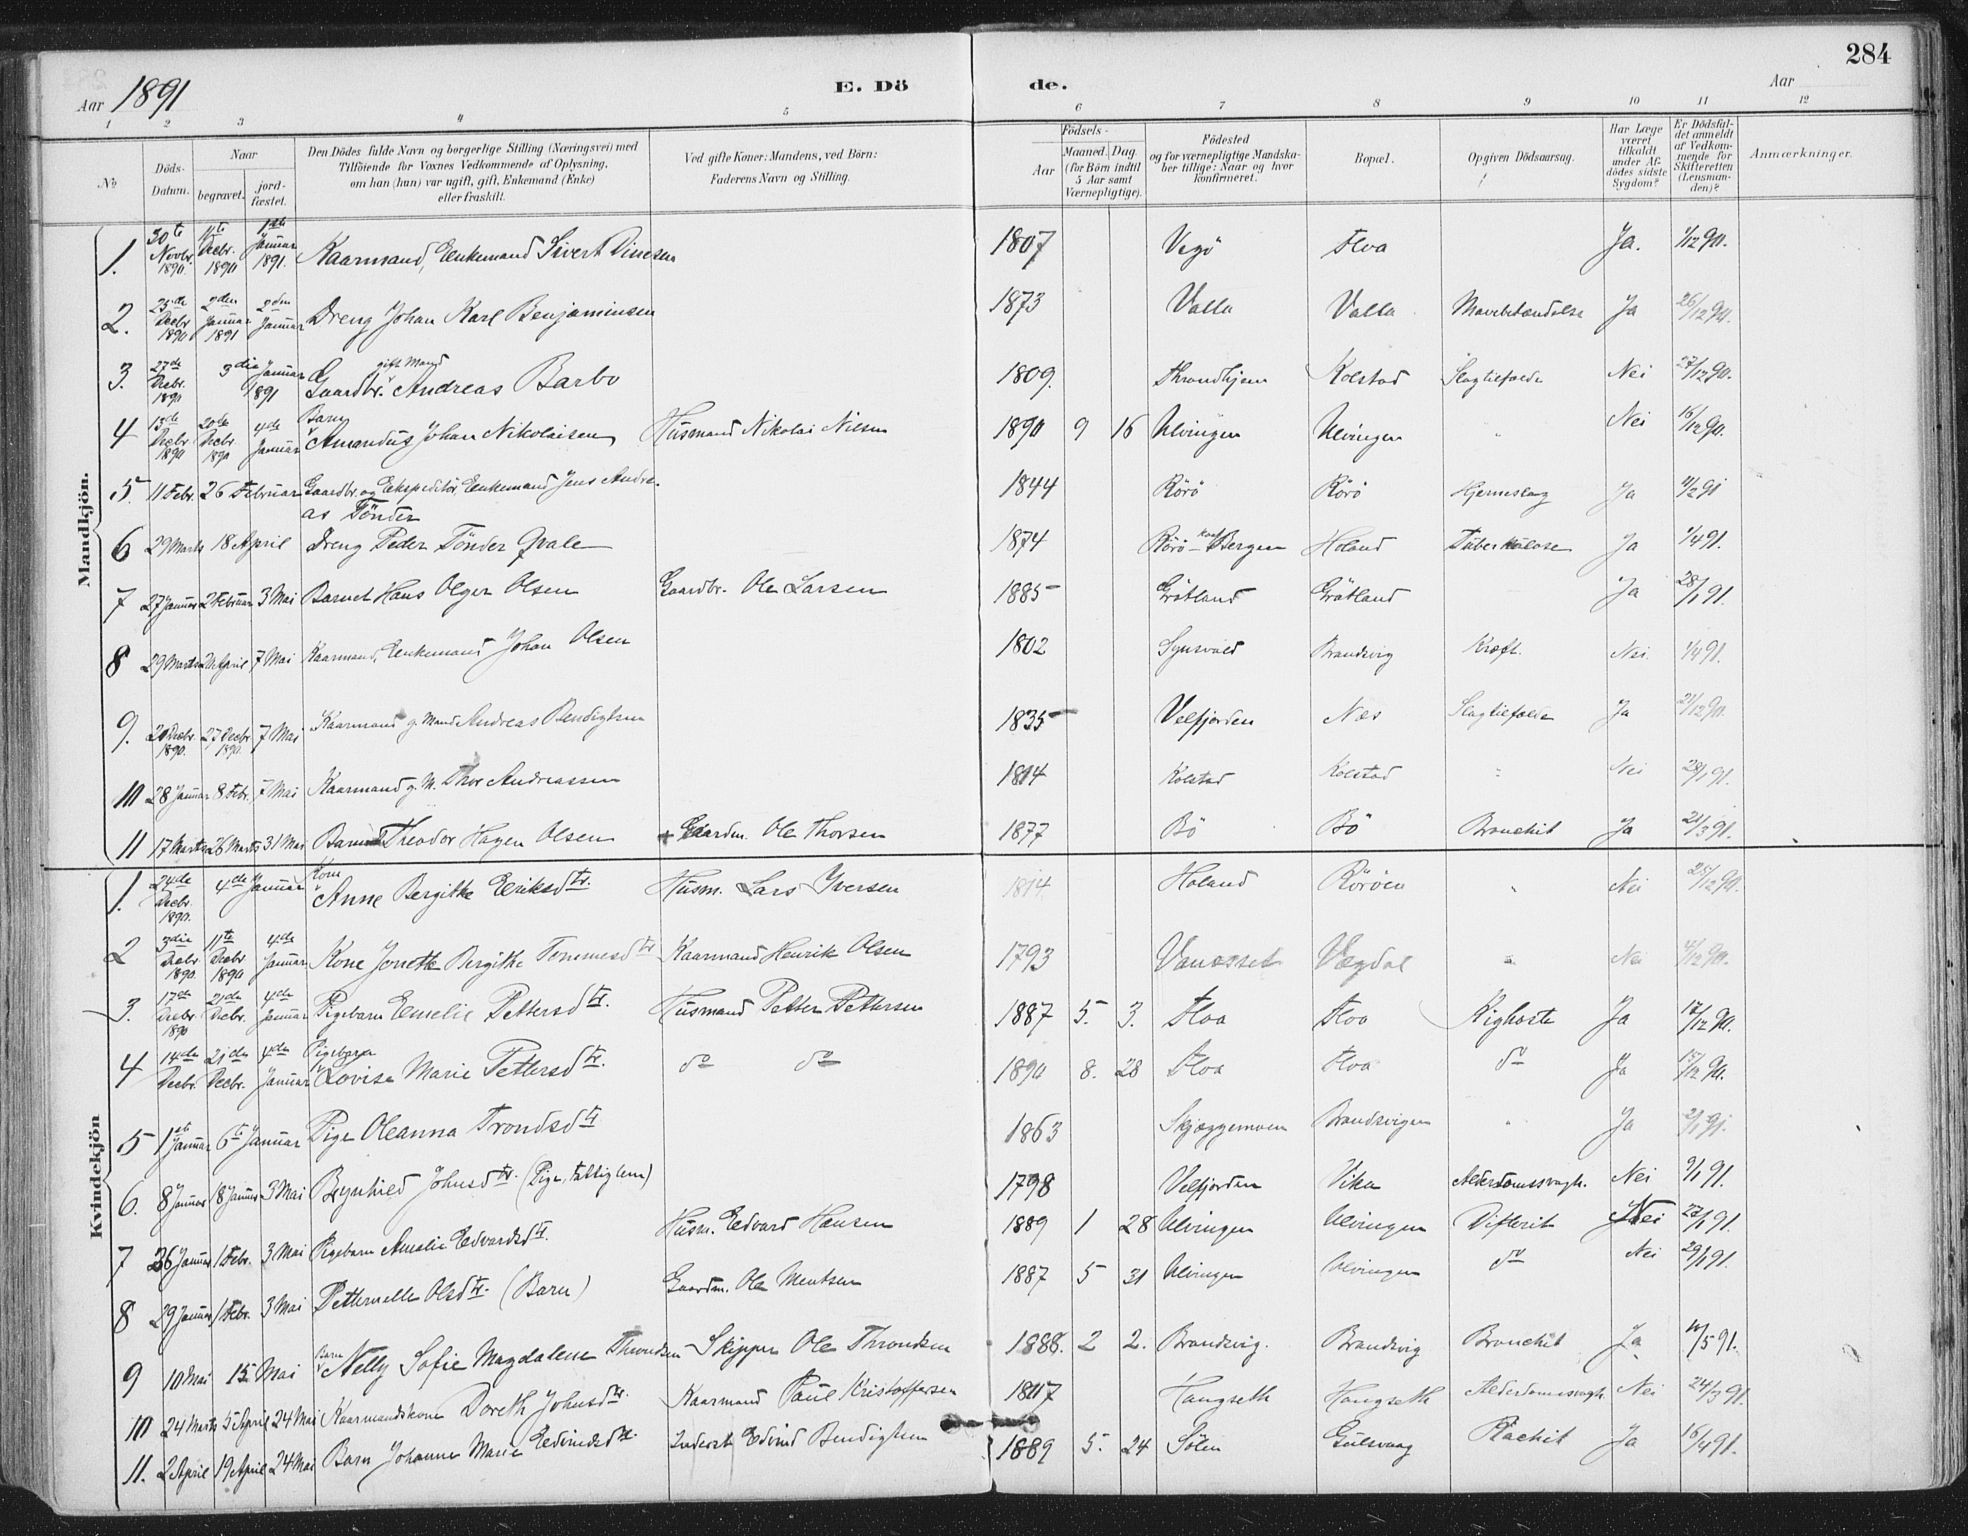 284
Aar 1891 E. Dö de. Aar
1 2 3 4 5 6 7 8 9 10 11 12
No
Döds-Datum.
Naar
begravet. jordfæstet.
Den Dödes fulde Navn og borgerlige Stilling (Næringsvei) med
Tilföiende for Voxnes Vedkommende af Oplysning,
om han (hun) var ugift, gift, Enkemand (Enke)
eller fraskilt.
Ved gifte Koner: Mandens, ved Börn:
Faderens Navn og Stilling.
Födsels-
Aar Maaned. Dag.
(for Börn indtil 5 Aar samt Værnepligtige).
Födested
og for værnepligtige Mandskaber tillige: Naar og hvor konfirmeret.
Bopæl.
Opgiven Dödsaarsag.
Har Læge været tilkaldt under Afdödes sidste Sygdom?
Er Dödsfaldet anmeldt af Vedkommende for Skifteretten (Lensmanden)?
Anmærkninger.
Mandkjön.
1. 30te Novbr. 1890 11te Decbr. 1890 1ste Januar 1891. Kaarmand, Enkemand Sivert Dinesen 1807 Vegö Floa Ja. 1/12 90.
2. 25de Decbr 1890 2den Januar 1891 2den Januar Dreng Johan Karl Benjaminsen 1873 Valla Valla Mavebetændelse Ja 26/12 90.
3. 27de Decbr. 1890 3die Januar 1891 Gaardbr. gift Mand Andreas Barbo 1809. Throndhjem Kolstad Slagtilfælde Nei 27/12 90.
4 13de Decbr 1890 20de Decbr 1890 4de Januar Barn Amandus Johan Nikolaisen Husmand Nikolai Nilsen 1890 9 16 Ulvingen Ulvingen " Nei 16/12 90.
5. 11 Febr. 26 Februar Gaardbr. og Ekspeditör, Enkemand Jens Andreas Tönder 1844 Rörö Rörö Hjerneslag Ja 11/2 91
6 29 Marts 18 April Dreng Peder Tönder Qvale 1874 Rörö - Konf. Bergen Holand Tuberkulose Ja 1/4 91.
7 27 Januar 2 Februar 3 Mai Barnet Hans Olger Olsen Gaardbr. Ole Larsen 1885 Gråtland Gråtland Ja 28/1 91.
8 29 Marts April 7 Mai Kaarmand, Enkemand Johan Olsen 1802 Brandsvig Kræft. Nei. 1/4 91.
9. Decbr 1890. 27 Decbr 1890. 7 Mai Kaarmand g. Mand Andreas Bendigtsen 1835 Velfjorden Næs Slagtilfælde Ja 21/12 90.
10 28 Januar 8 Febr. 7 Mai Kaarmand g. M. Thor Andreassen 1814 Kolstad Kolstad " Nei 28/1 91.
11 17 Marts 26 Marts 31 Mai Barnet Theodor Hagen Olsen Gaardm. Ole Thorsen 1877 Bö Bö Bronchit Ja 21/3 91.
Kvindekjön
1. 24de Decbr. 1890. 4de Januar Kone Anne Bergitke Eriksdtr. Husm. Lars Iversen 1814 Holand Röröen " Nei 28/12 90.
2 3die Decbr 1890. 11te Decbr 1890 4de Januar Kone Jonette Bergitke Tommesdtr Kaarmand Henrik Olsen 1793 Vandsset Vægdal " Nei 4/12 90.
3. 17de Decbr 1890 21de Decbr. 4de Januar Pigebarn Emelie Pettersdtr. Husmand Petter Pettersen 1887 5. 3. Floa Floa Kighoste Ja 17/12 90.
4 14de Decbr. 21de Decbr. 4de Januar Pigebarn Lovise Marie Pettersdtr. do do 1890 8. 28 Floa Floa do Ja 15/12 90.
5 1ste Januar 6te Januar Pige Oleanna Trondsdtr 1863 Skjæggemoen Brandsvigen " Ja 2/1 91.
6. 8 Januar 18 Januar 3 Mai Brynhild Johnsdtr. (Pige, Fattiglem) 1798 Velfjorden Vika Alderdomssvagh. Nei 9/1 91.
7 26 Januar 1 Febr. 3 Mai Pigebarn Amalie Edvardsdtr. Husm. Edvard Hansen 1889 1 28 Ulvingen Ulvingen Difterit Nei 27/1 91.
8 29 Januar 1 Febr. 3 Mai Petternelle Olsdtr. (Barn) Gaardm. Ole Mentsen 1887 5 31 Ulvingen Ulvingen do Nei 29/1 91.
9 10 Mai 15 Mai Barn Nelly Sofie Magdalene Throndsen Skipper Ole Throndsen 1888. 2 2. Brandsvig. Brandsvig Bronchit Ja 11/5 91.
10 24 Marts 5 April 24 Mai Kaarmandskone Doreth Johnsdtr. Kaarmand Paul Kristoffersen 1807 Hongseth Hongseth Alderdomssvagh. Nei 24/3 91.
11. 2 April 19 April 24 Mai Barn Johanne Marie Edvindsdtr. Inderst Edvind Bendigtsen 1889 5. 24 Sölen Gulsvaag Rachit Ja 16/4 91.